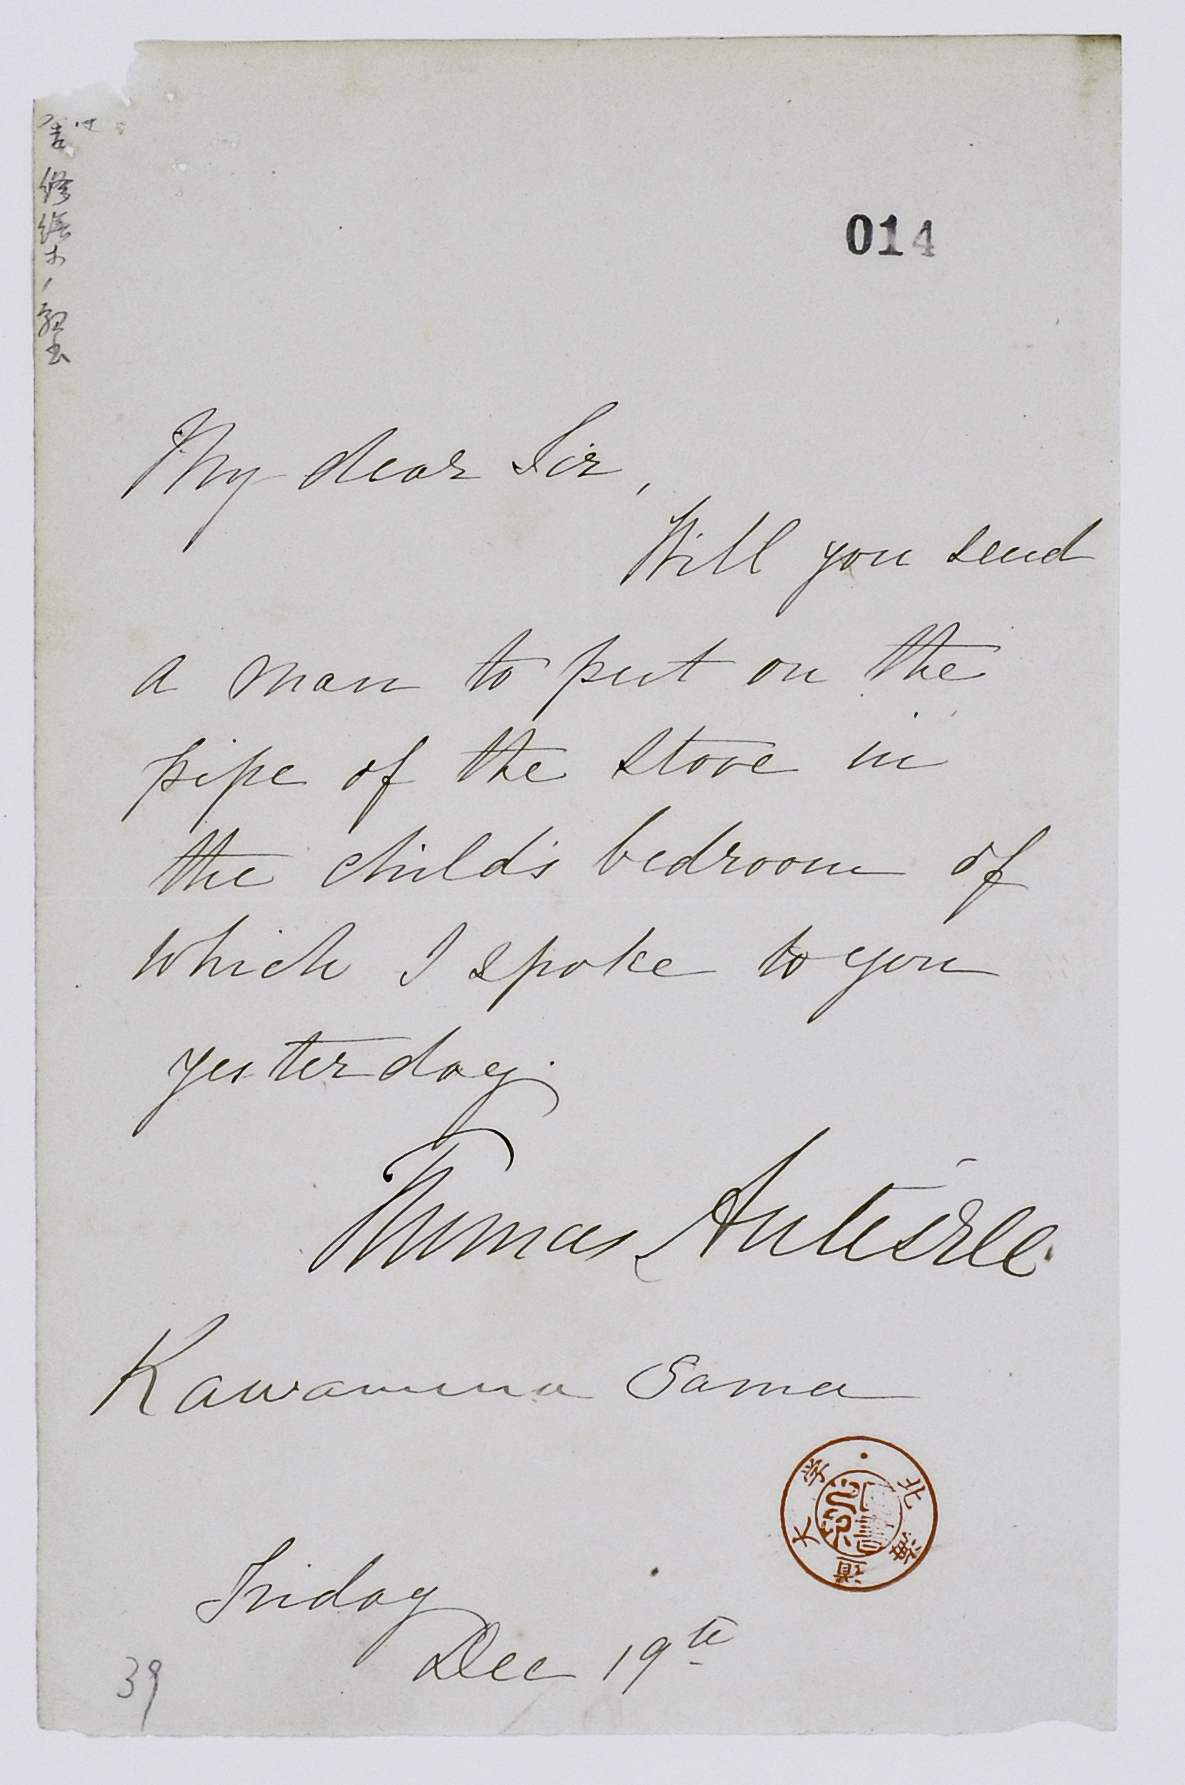 014
My dear Sir,
Will you send
a man to put on the
pipe of the stove in
the child's bedroom of
which I spoke to you
yesterday.
Thomas Antisell
Kawamura Sama
北海道大学
Friday
Dec 19th
39